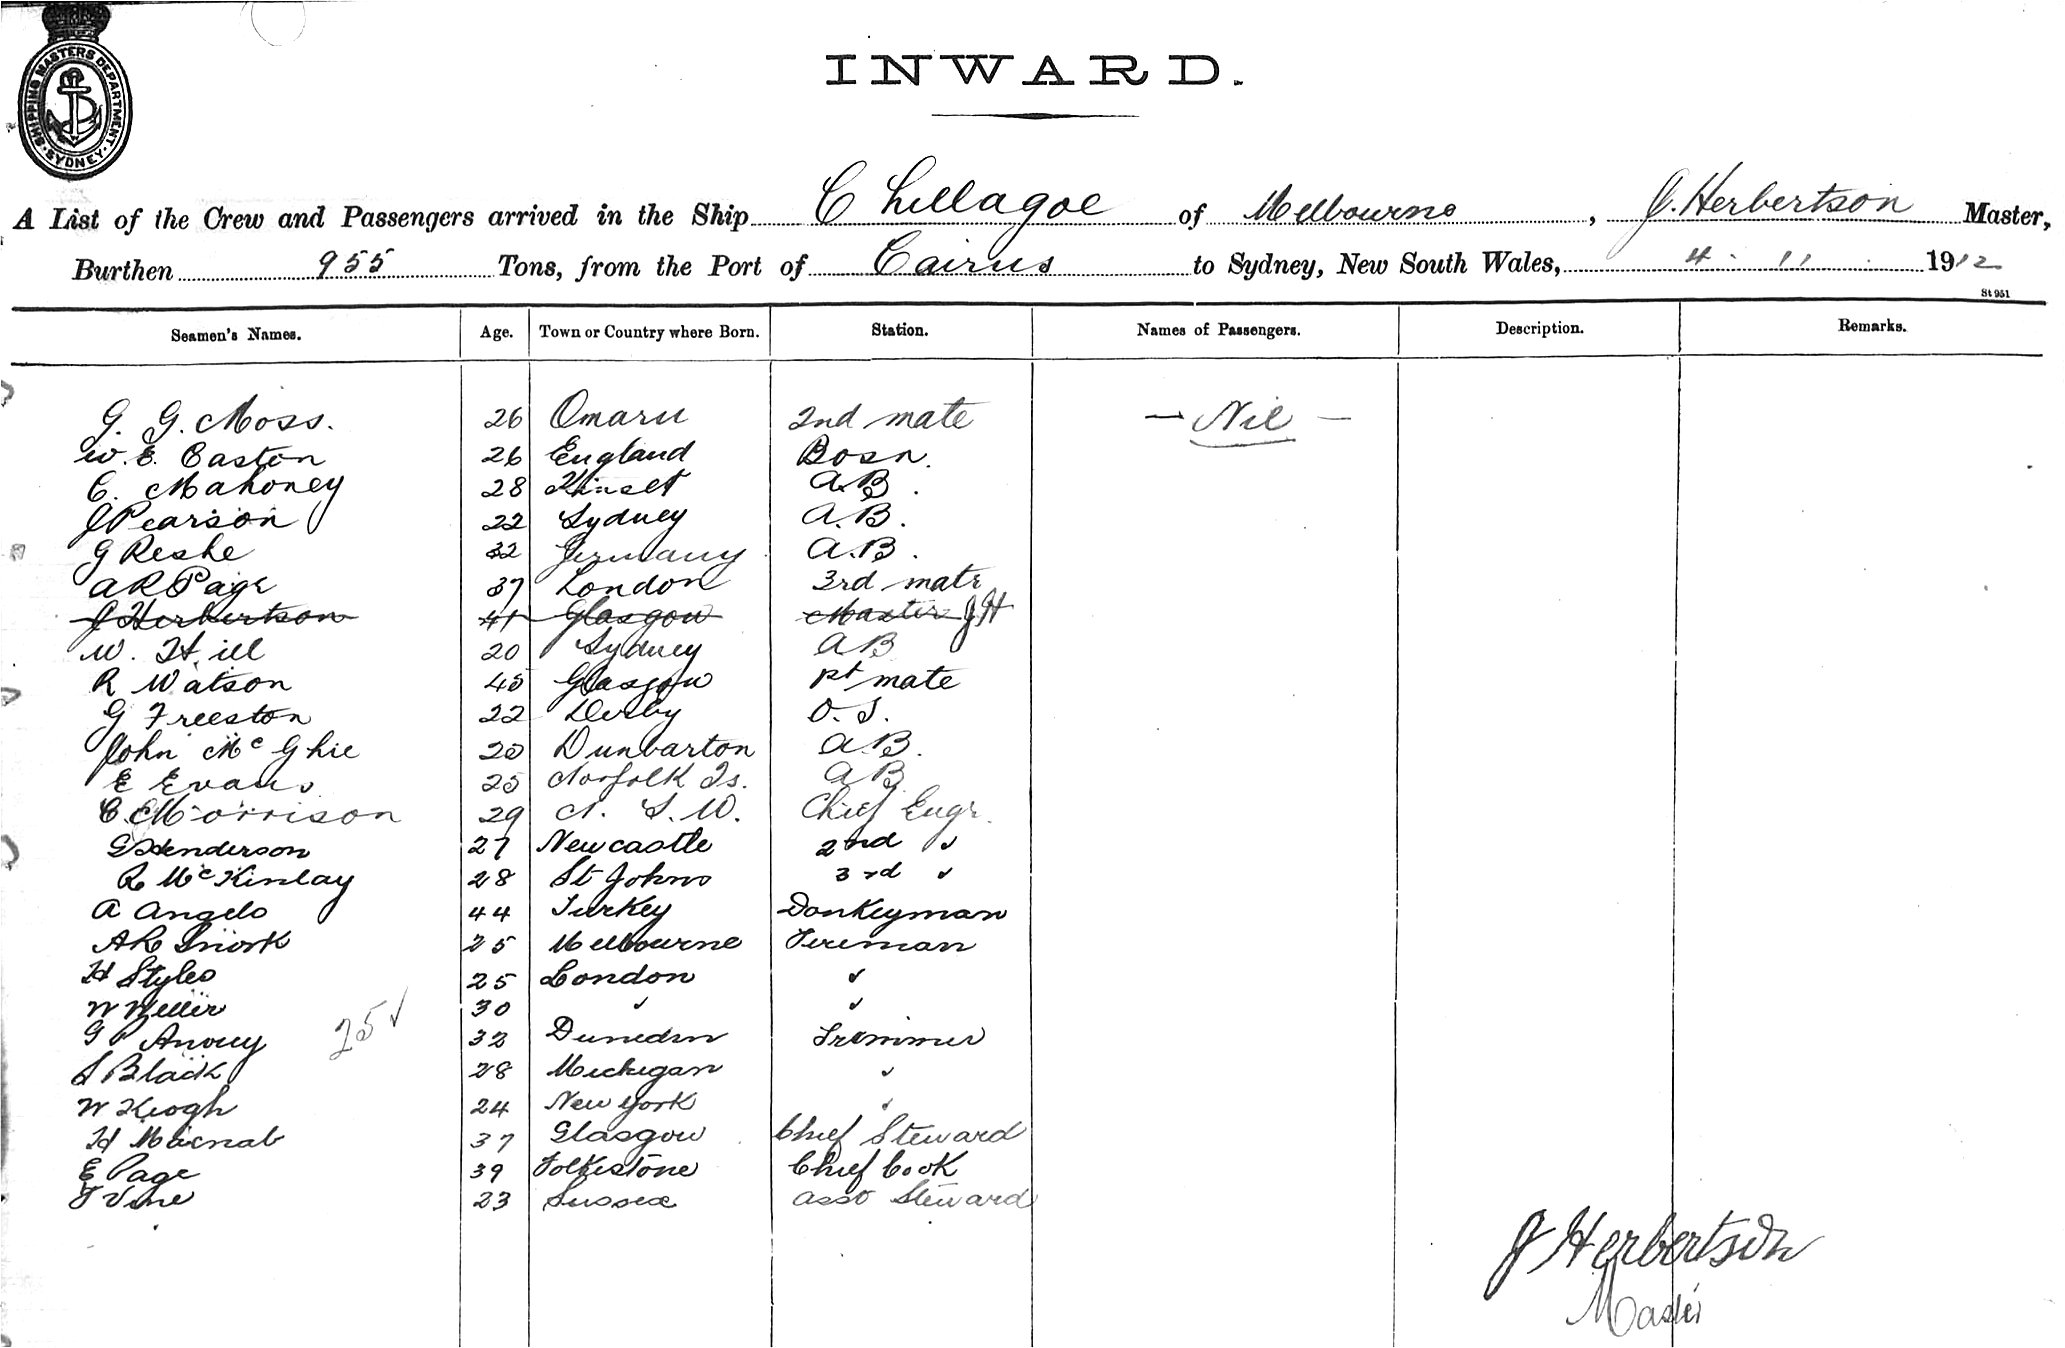 SHIPPING MASTERS DEPARTMENT. SYDNEY.
INWARD.
A List of the Crew and Passengers arrived in the Ship Chillagoe of Melbourne, J. Herbertson Master,
Burthen 955 Tons, from the Port of Cairns to Sydney, New South Wales, 4. 11. 1912
St 951
Seamen's Names. Age. Town or Country where Born. Station. Names of Passengers. Description. Remarks.
G. G. Moss. 26 Omaru 2nd mate — Nil —
W. E. Easton 26 England Bosn.
C. Mahoney 28 A.B.
J Pearson 22 Sydney A.B.
G Reshe 32 Germany A.B.
A R Page 37 London 3rd mate
J Herbertson 41 Glasgow Master J.H
W. Hill 20 Sydney AB
R Watson 45 Glasgow 1st mate
G Freeston 22 Derby O.S.
John McGhie 20 Dunbarton A.B.
E Evans 25 Norfolk Is. AB
C Morrison 29 N. S. W. Chief Engr.
G Henderson 27 Newcastle 2nd "
R McKinlay 28 St Johns 3rd "
A Angelo 44 Turkey Donkeyman
25 Melbourne Fireman
H Styles 25 London "
W 30 " "
G 32 Dunedin Trimmer
25 ✓
S Black 28 Michigan "
W Keogh 24 New York "
H Macnab 37 Glasgow Chief Steward
E Page 39 Folkestone Chief Cook
T Vine 23 Sussex Asst Steward
J Herbertson
Master